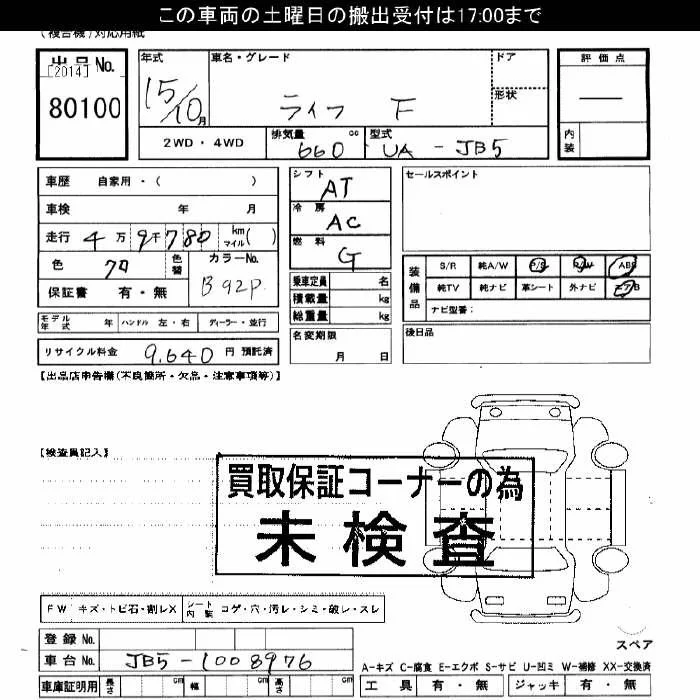 この車両の土曜日の搬出受付は17:00まで
(複合機)対応用紙
出品No.
[2014]
80100
年式
15/10月
車名・グレード
ライフ F
ドア
形状
2WD・4WD
排気量
660 cc
型式
UA - JB5
評価点
内装
車歴 自家用・( )
車検 年 月
走行 4万9千780 km マイル( )
色 クロ
色替
カラーNo.
B92P
保証書 有・無
シフト
AT
冷房
AC
燃料
G
乗車定員 名
積載量 kg
総重量 kg
セールスポイント
装備品
S/R 純A/W P/S P/W ABS
純TV 純ナビ 革シート 外ナビ エアB
ナビ型番:
モデル年式 年 ハンドル 左・右 ディーラー・並行
名変期限
月 日
後日品
リサイクル料金 9,640 円 預託済
【出品店申告欄(不良箇所・欠品・注意事項等)】
【検査員記入】
買取保証コーナーの為
未検査
FW キズ・トビ石・割レX
シート内装 コゲ・穴・汚レ・シミ・破レ・スレ
登録No.
車台No. JB5-1008976
車庫証明用 長さ cm 幅 cm 高さ cm
スペア
A-キズ C-腐食 E-エクボ S-サビ U-凹ミ W-補修 XX-交換済
工具 有・無 ジャッキ 有・無